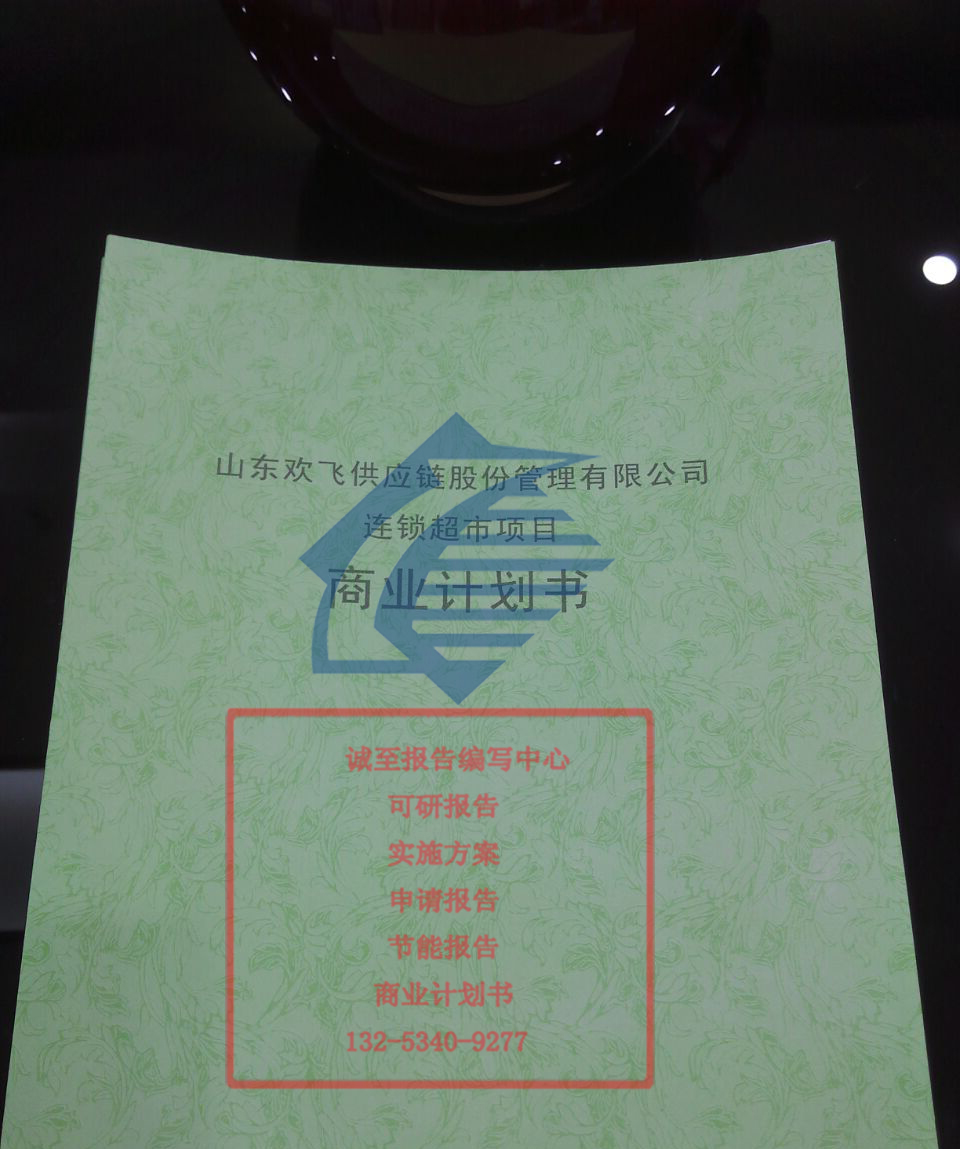 山东欢飞供应链股份管理有限公司
连锁超市项目
商业计划书
诚至报告编写中心
可研报告
实施方案
申请报告
节能报告
商业计划书
132-5340-9277